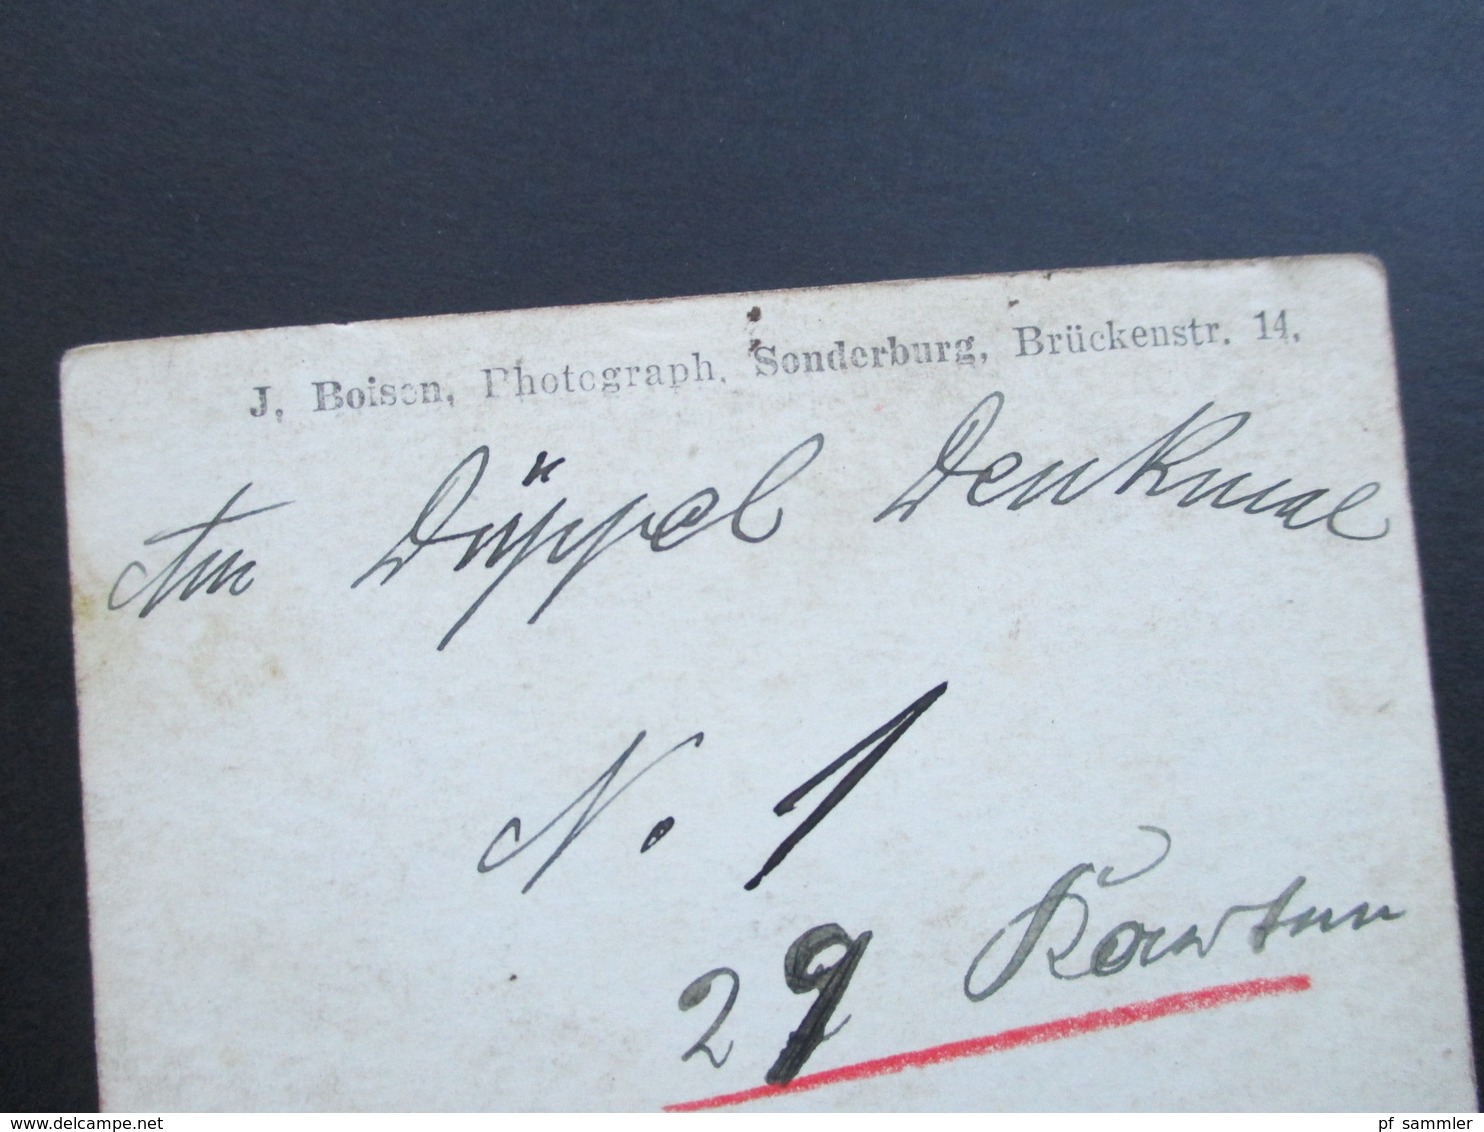 J. Boisen, Photograph, Sonderburg, Brückenstr. 14.
Am Düppel Denkmal
N. 1
29 Karten
© Delcampe.net
pf_sammler